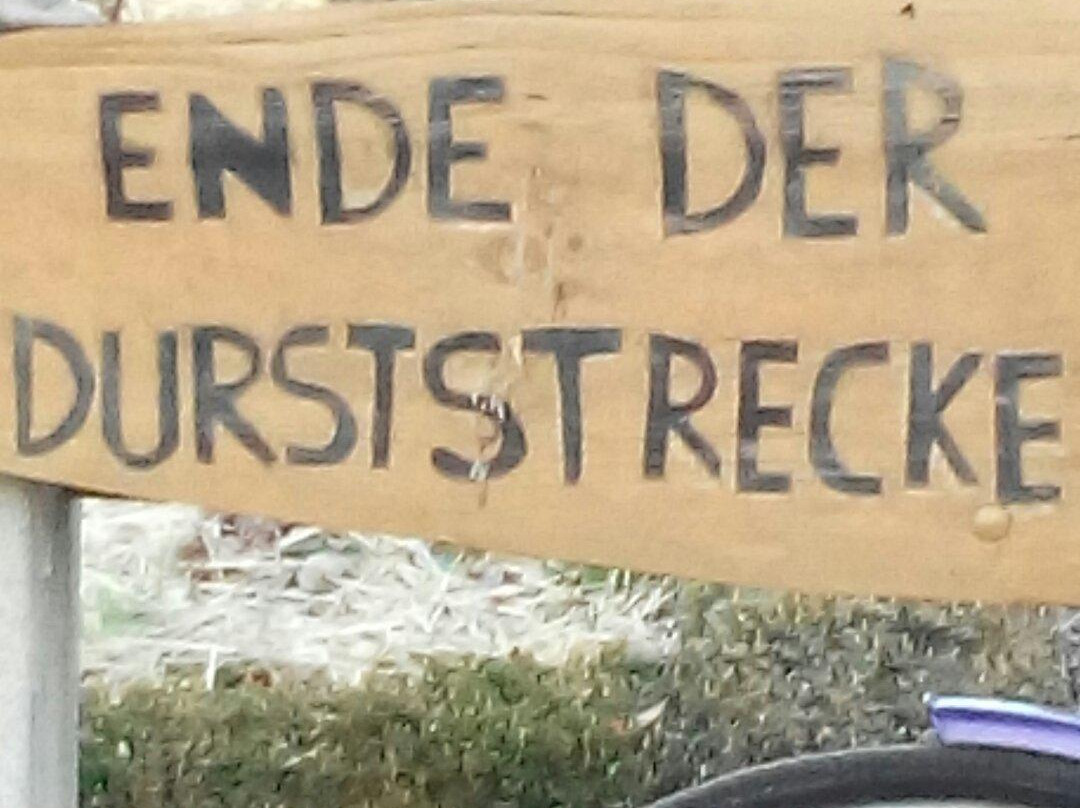 ENDE DER
DURSTSTRECKE